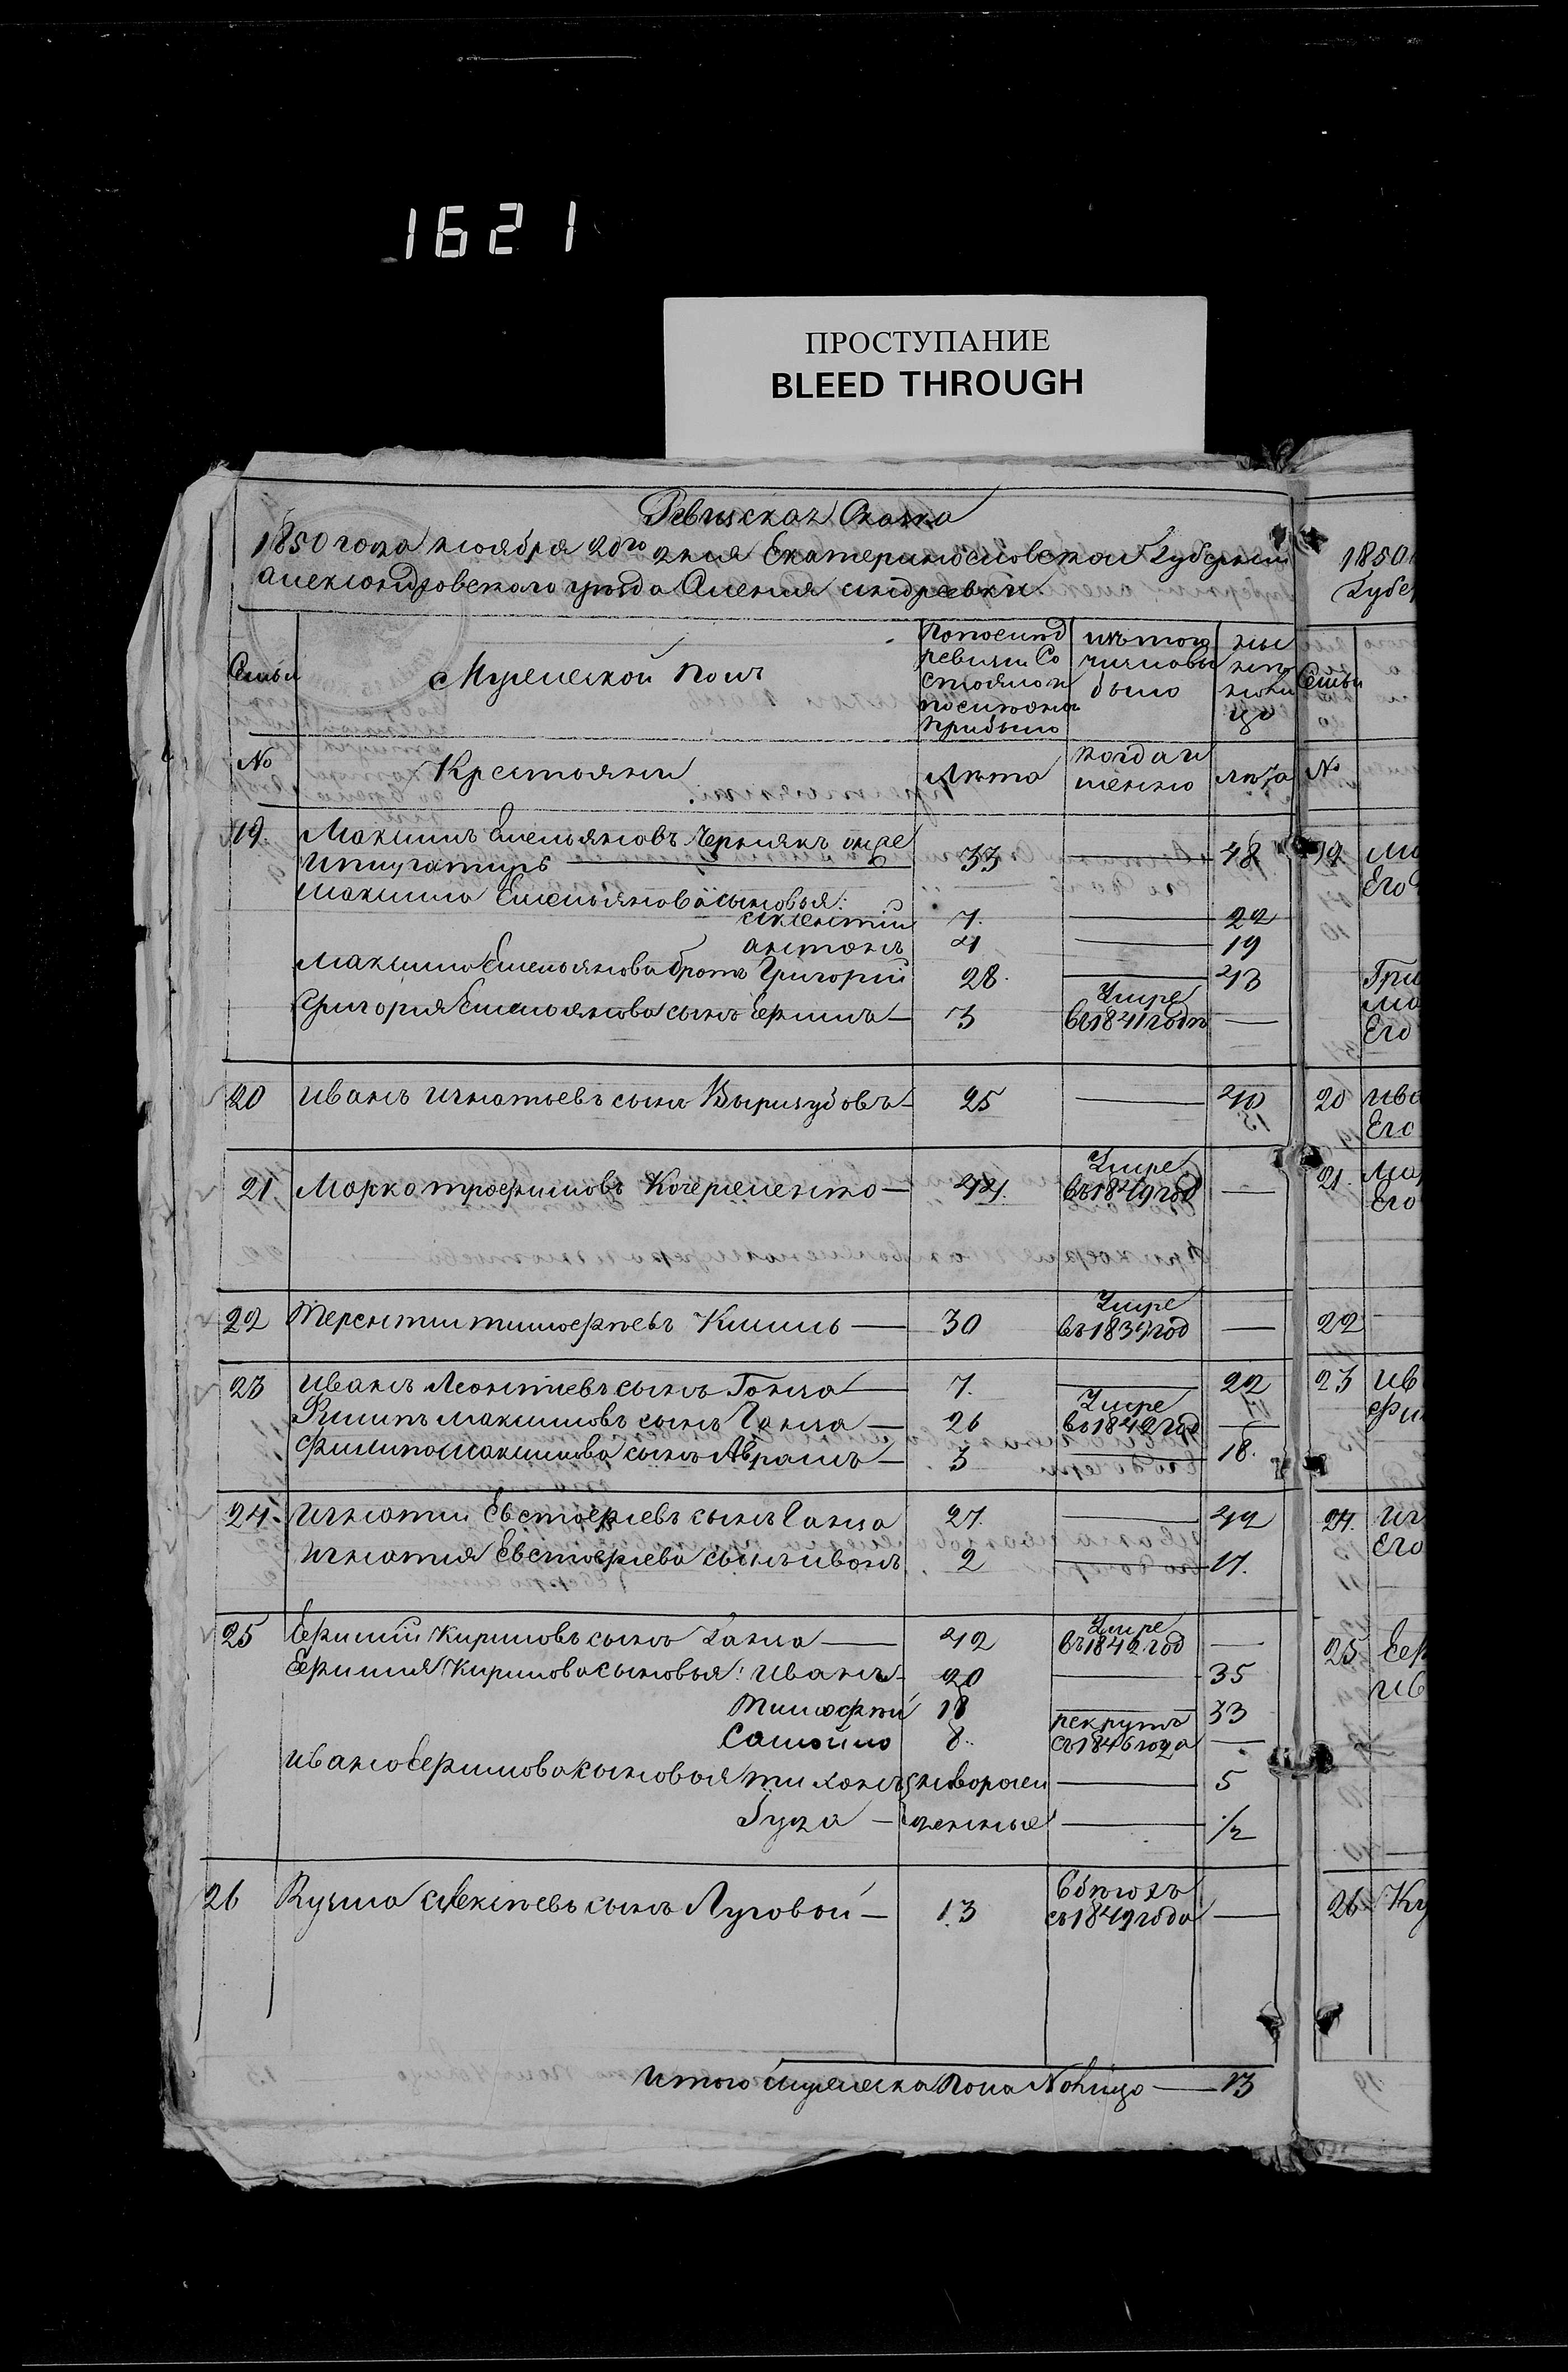 1621
ПРОСТУПАНИЕ
BLEED THROUGH
Ревизская Сказка
1850 года ноября 20го дня Екатеринославской Губернии
Александровского уезда Андреевки
Семьи
Мужеской полъ
По последней ревизии Состояло и после того прибыло
Изъ того числа выбыло
Ныне на лицо
№
Крестьяни
Лета
когда именно
лета
19. Максимъ Емельяновъ Чернякъ онже
33 — 48
Максима Емельянова сыновья:
7. — 22
антонъ 4 — 19
Максима Емельянова братъ Григорий 28. — 43
Григория Емельянова сынъ Ефимъ — 3 Умре въ 1841 годе —
20 Иванъ Игнатьевъ сынъ Вырызубовъ — 25 — 40
21 Марко трофимовъ Кочерженко — 44. Умре въ 1849 год —
22 Терентий тимофеевъ Кишль — 30 Умре въ 1839 год —
23 Иванъ Леонтиевъ сынъ Ганжа — 7. — 22
Филипъ Максимовъ сынъ Ганжа — 26 Умре въ 1842 год —
Филипа Максимова сынъ Аврамъ — 3 — 18.
24. Игнатий Евстафиевъ сынъ Ганжа 27. — 42
Игнатия Евстафиева сынъ иванъ 2 — 17.
25 Ефимий Кириловъ сынъ Ганжа — 42 Умре въ 1842 год —
Ефимия Кирилова сыновья: Иванъ — 20 — 35
Тимофей 18 — 33
Самойло 8. рекрутъ съ 1846 года —
Ивана Ефимова сыновья тихонъ новорож — 5
Гура — денные — 1/2
26 Кузма сынъ Луговой — 13 въ бегахъ съ 1849 года —
Итого мужеска пола Налицо — 13
1850
Губе
Семьи
№
19
Его
Гри
Его
20 Ива
Его
21. Мар
Его
22
23 Ив
Фи
24. Иг
Его
25 Еф
Ив
26 Ку